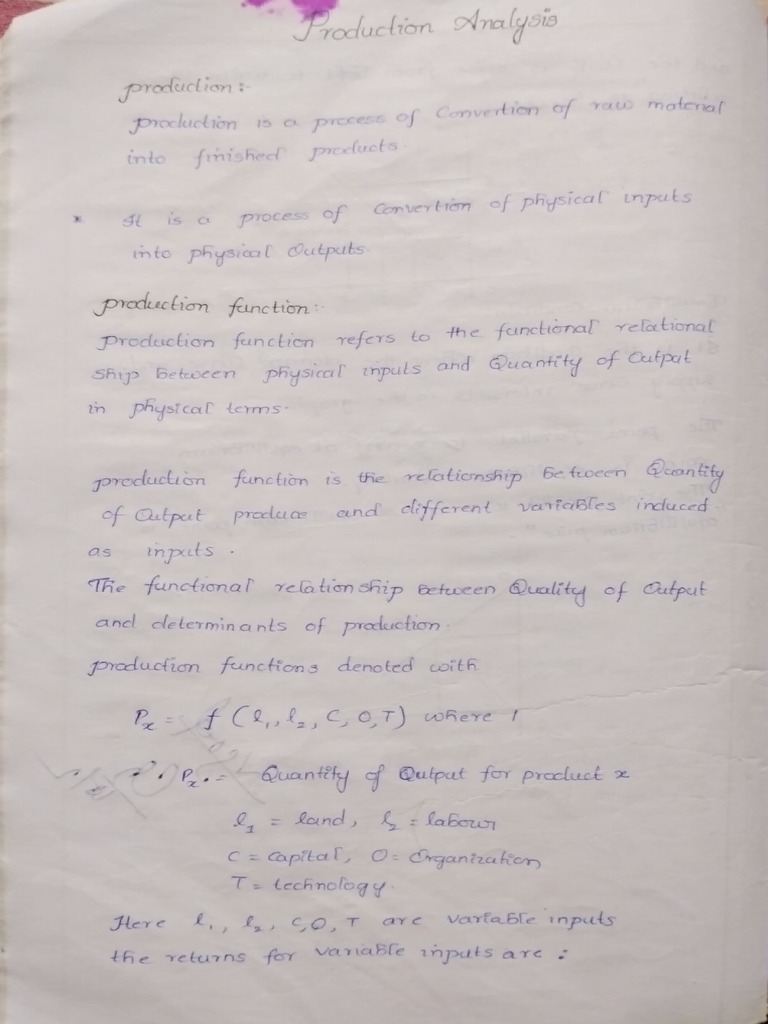 Production Analysis
production:-
production is a process of Convertion of raw material
into finished products.
* It is a process of Convertion of physical inputs
into physical Outputs.
production function:-
production function refers to the functional relational
ship between physical inputs and Quantity of Output
in physical terms.
production function is the relationship between Quantity
of Output produce and different variables induced
as inputs.
The functional relation ship between Quality of Output
and determinants of production.
production functions denoted with
Px = f (l1, l2, C, O, T) where
Px = Quantity of Output for product x
l1 = land, l2 = labour
C = capital, O = Organization
T = technology.
Here l1, l2, C, O, T are variable inputs
the returns for variable inputs are :